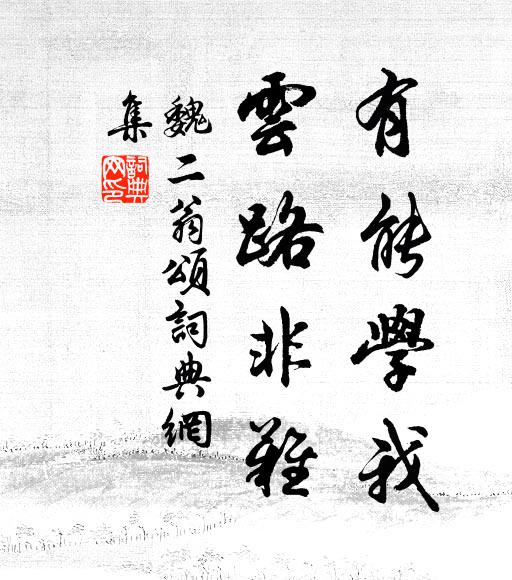 有能學我
雲路非難
魏二翁頌詞典網
集
詞典
网印